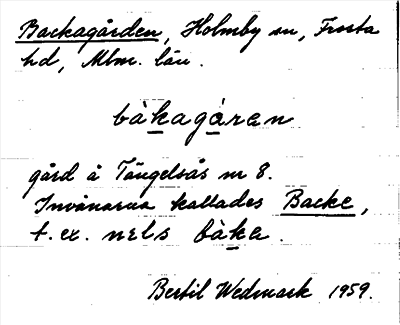 Backagården, Holmby sn, Frosta
hd, Mlm. län.
bàkagáren
gård å Tängelsås nr 8.
Invånarna kallades Backe,
t. ex. nels bàka.
Bertil Wedmark 1959.